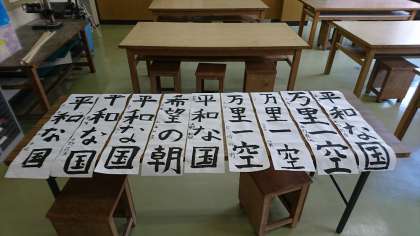 平和な国
平和な国
平和な国
希望の朝
平和な国
万里一空
万里一空
万里一空
平和な国